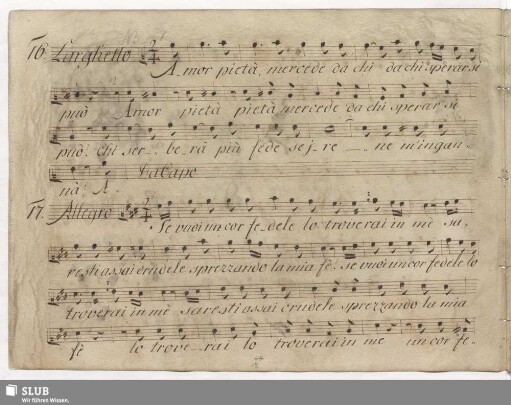 16. Larghetto
Amor pietà, mercede da chi da chi sperar si
può Amor pietà pietà mercede da chi sperar si
può: chi ser-be-rà più fede se j-re-ne m'ingan-
nà: A. Da Capo
17. Allegro
Se vuoi un cor fe-dele lo troverai in mè sa-
resti assai crudele sprezzando la mia fè. se vuoi un cor fedele lo
troverai in mè saresti assai crudele sprezzando la mia
fè lo trove-rai lo troverai in me un cor fe-
SLUB
Wir führen Wissen.